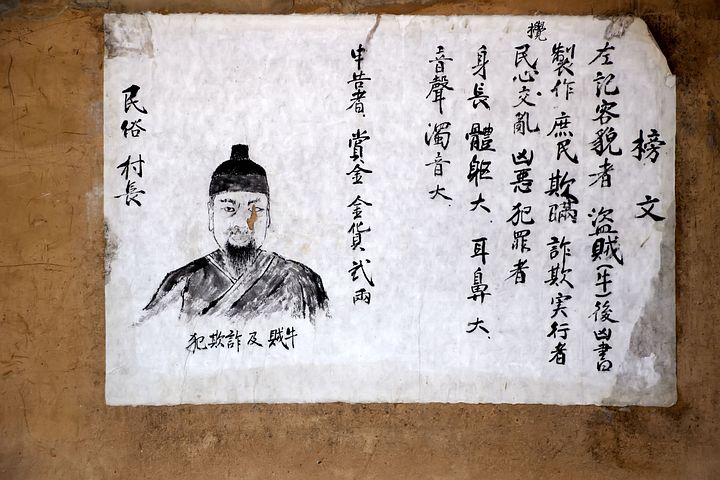 榜文
左記容貌者 盜賊(牛)後凶書
製作 庶民 欺瞞 詐欺 実行者
攪
民心交亂 凶惡 犯罪者
身長 體軀大、耳鼻 大、
音聲 濁音大、
申告者、賞金 金貨 弐兩
民俗 村長
犯欺詐及賊牛